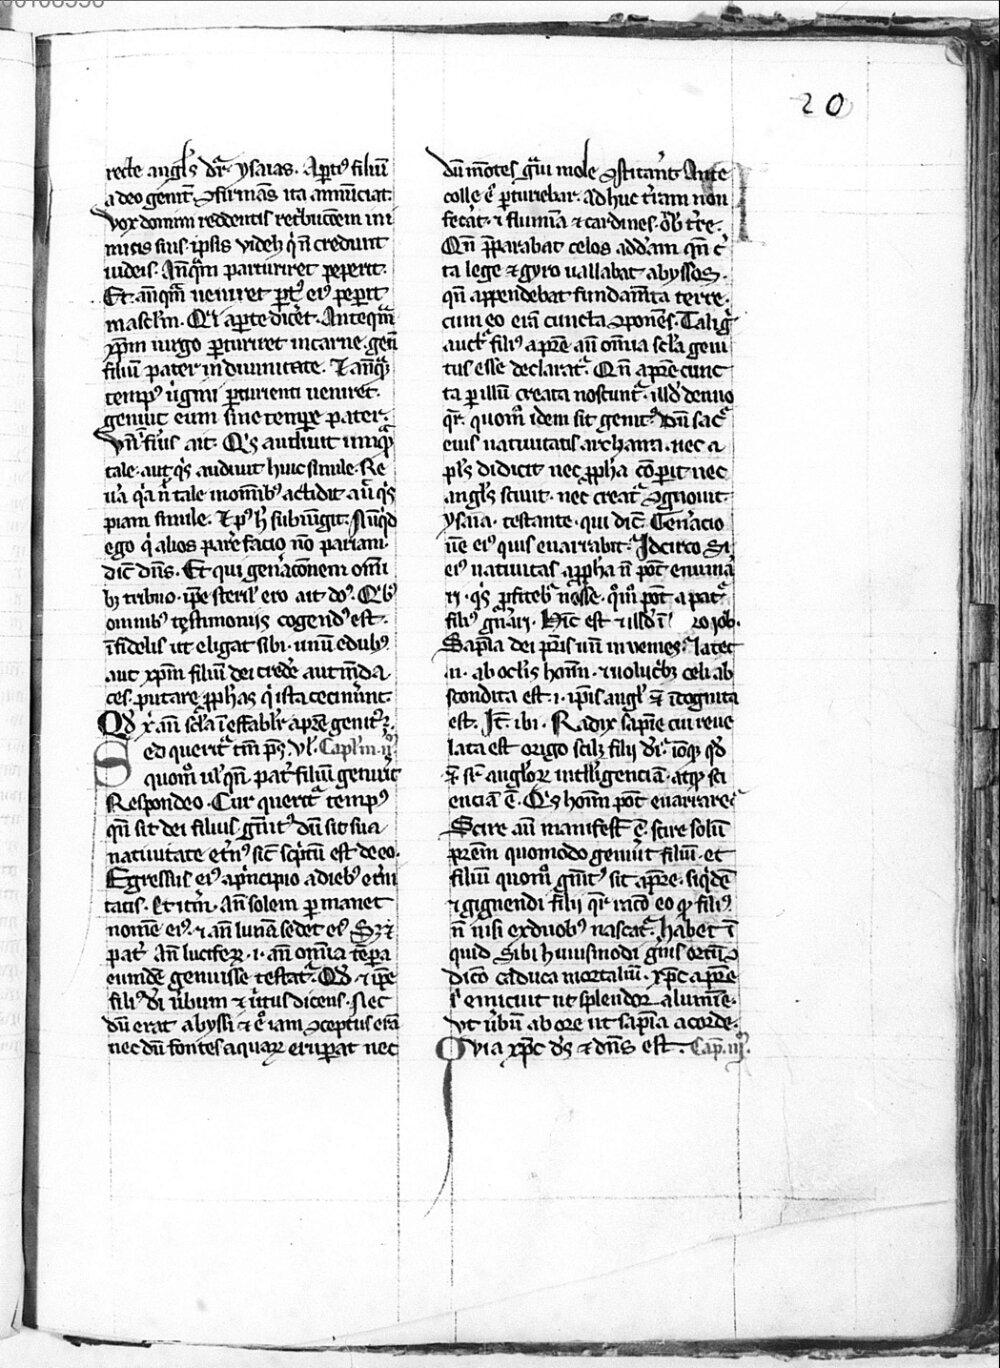 20
recte angl's dr̄ ysaias. Apte filiū
a deo genit' ꝯfirmās ita annūciat.
Vox domini reddentis retbucōem ini
micis suis. ipsis videlꝫ q' n̄ credunt
iudeis. Anq̄m parturiret peperit.
Et anq̄m veniret pt' ei' peperit
mascl'm. Q'i aperte dicēt. Anteq̄m
xp̄m virgo parturiret in carne. gen̄
filiū pater in diuinitate. ⁊ anq̄
temp' v'gini parturienti veniret.
genuit eum sine tempe pater.
Vn̄ s'us ait. Q's audiuit umq̄
tale. aut q's audiuit huic simile. Re
u'a q'a n̄ tale in omīb' accidit aū q's
piam simile. ⁊ p' h' subiūgit. Nūq'd
ego q' alios pare facio nō pariam
dic̄ dn̄s. Et qui gen'acōnem om̄i
bꝫ tribuo. ip̄e steril' ero ait do'. Q'b'
omnib' testimoniis cogend' est
īfidelis ut eligat sibi. unū e duob'
aut xp̄m filiū dei crede aut mēda
ces putare p̄phas q' ista cecinūnt.
Qd' x' an̄ scl'a ī effabl'r a pr̄e genit' ē.
Sed querit' tn̄ Cap'lm ij
quom̄ ul' qn̄ pat' filiū genuit
Respondeo. Cur querit' temp'
qn̄ sit dei filius gn̄it' dū sit sua
natiuitate et'n' sic scptū est de eo.
Egressus ei' a p'ncipio a dieb' et'ni
tatis. Et it'm. An̄ solem permanet
nomē ei'. ⁊ an̄ lunā sedes ei'. Sꝫ ⁊
pat' An̄ lucifeꝝ .i. an̄ om̄ia tēpa
eumdē genuisse testat'. Qd' ⁊ ip̄e
fili' d'i v'bum ⁊ v'tus dicens. Nec
dū erat abyssi ⁊ ē iam ꝯceptus erā
nec dū fontes aquaꝝ eruperat nec
dū mōtes g'ui mole ꝯstiterāt Ante
colle ē parturiebar. adhuc t'ram non
fecāt. ⁊ flumīa ⁊ cardines orb' t're.
Qn̄ p̄parabat celos adderam qn̄ c'
ta lege ⁊ gyro uallabat abyssos.
qn̄ appendebat fundam̄ta terre.
cum eo erā cuncta ꝯponēs. Tali g'
auct' fili' a pr̄e an̄ om̄ia scl'a geni
tus esse declarat'. Qn̄ a pr̄e cunc
ta per illū creata noscunt'. illd' denuo
qr̄. quom̄ idem sit genit'. Dū sac̄
eius natiuitatis archana. nec a
pl's didicit nec p̄pha cōperit nec
angl's sciuit. nec creat' ꝯgnouit
ysaia. testante. qui dic̄ Gen'acio
nē ei' quis enarrabit. Idcirco Si
ei' natiuitas a p̄pha n̄ pot̄ enuncia
ri. q's p̄fitebr̄ nosse. q'm̄ pot̄ a pat'
fili' gn̄'ari. Hic̄ est ⁊ illd' ī ro iob.
Sap̄ia dei pr̄is un̄ inuenies. latet
.n. ab oclis hom̄. ⁊ uolucbꝫ celi ab
scondita est .i. ip̄sis angl' ē īcognita
est. It̄ ibi. Radix sap̄ie cui reue
lata est origo scilꝫ filii d'i. ioq̄ qd'
ē sr̄ angl'oꝝ intelligenciā. atq̄ sci
enciā ē. Q's hom̄ pot̄ enarrare.
Scire aū manifest' ē. scire solū
pr̄em quomodo genuit filiū. et
filiū quom̄ gn̄it' sit a pr̄e. siq'dē
⁊ gignendi filii qr̄ racō eo q' fili'
n̄ nisi ex duob' nascat'. habet ī
quid sibi huiusmodi gn̄is ortū
dico caduca mortaliū. xp̄c a pr̄e
s' emicuit ut splendor a lumīe.
Vt v'bū ab ore ut sap̄ia a corde.
Quia xp̄c d's ⁊ dn̄s est. Cap. iij.